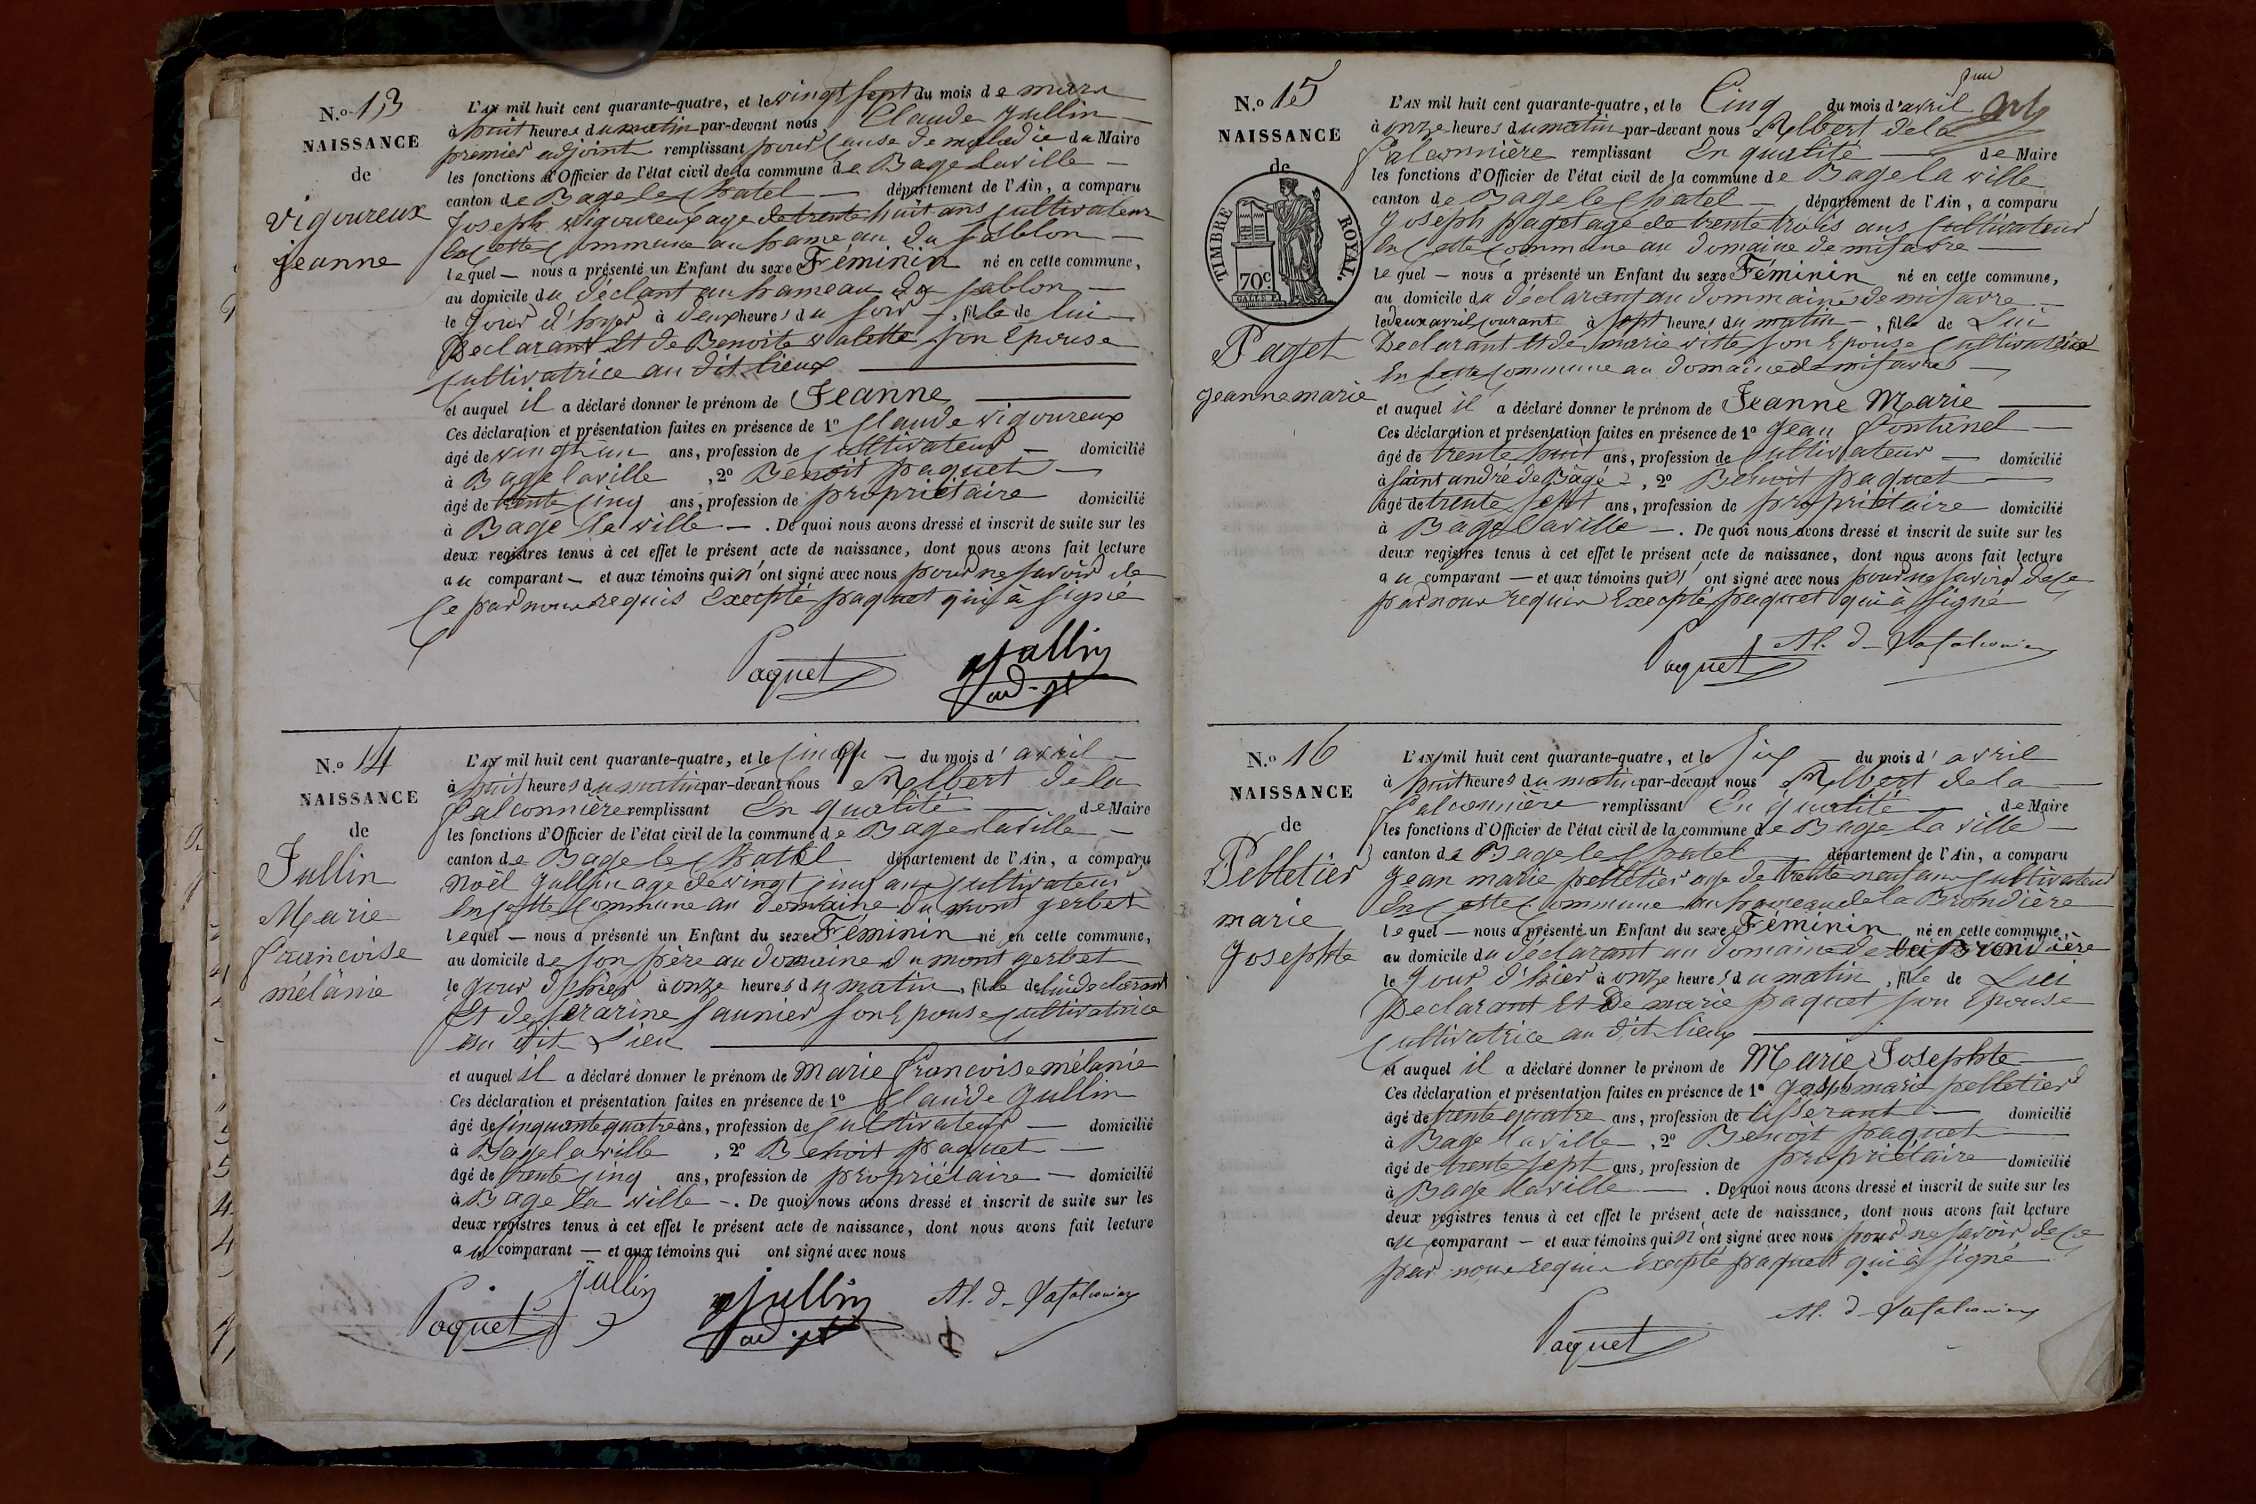 N.o 13
NAISSANCE
de
Vigoureux
jeanne
L'AN mil huit cent quarante-quatre, et le vingt sept du mois de mars
à huit heures du matin par-devant nous Claude Jullin
premier adjoint remplissant pour cause de maladie du Maire
les fonctions d'Officier de l'état civil de la commune de Bagé laville
canton de Bage le Chatel département de l'Ain, a comparu
Joseph Vigoureux age de trente huit ans cultivateur
en cette commune au hameau du sablon
lequel nous a présenté un Enfant du sexe Féminin né en cette commune,
au domicile du déclant au hameau du sablon
le jour d'hyer à deux heures du soir, fille de lui
Declarant Et de Benoite valette son Epouse
cultivatrice au dit lieux
et auquel il a déclaré donner le prénom de Jeanne
Ces déclaration et présentation faites en présence de 1o Claude vigoureux
âgé de vingt un ans, profession de cultivateur domicilié
à Bage laville, 2o Benoit paquet
âgé de trente cinq ans, profession de propriétaire domicilié
à Bage la ville. De quoi nous avons dressé et inscrit de suite sur les
deux registres tenus à cet effet le présent acte de naissance, dont nous avons fait lecture
au comparant et aux témoins qui n'ont signé avec nous pour ne savoir de
ce par nous requis Excepté paquet qui à signé
Paquet Jullin
adjt
N.o 14
NAISSANCE
de
Jullin
Marie
francoise
mélanie
L'AN mil huit cent quarante-quatre, et le cinq du mois d'avril
à huit heures du matin par-devant nous Albert de la
falconnière remplissant En qualité de Maire
les fonctions d'Officier de l'état civil de la commune de Bage laville
canton de Bage le Chattel département de l'Ain, a comparu
Noël Jullin age de vingt cinq ans cultivateur
En cette commune au domaine du mont gerbet
lequel nous a présenté un Enfant du sexe Féminin né en cette commune,
au domicile de son père au domaine du mont gerbet
le jour d'hier à onze heures du matin, fille de lui declarant
Et de Serarine saunier son Epouse cultivatrice
au dit Lieu
et auquel il a déclaré donner le prénom de Marie francoise mélanie
Ces déclaration et présentation faites en présence de 1o Claude Jullin
âgé de cinquante quatre ans, profession de cultivateur domicilié
à Bage laville, 2o Benoit paquet
âgé de trente cinq ans, profession de propriétaire domicilié
à Bage la ville. De quoi nous avons dressé et inscrit de suite sur les
deux registres tenus à cet effet le présent acte de naissance, dont nous avons fait lecture
au comparant et aux témoins qui ont signé avec nous
Paquet jullin Jullin Al. d. Lafalconière
adjt
N.o 15
NAISSANCE
de
TIMBRE ROYAL.
70c
Paget
jeanne marie
L'AN mil huit cent quarante-quatre, et le Cinq du mois d'avril
à onze heures du matin par-devant nous Albert de la
falconnière remplissant En qualité de Maire
les fonctions d'Officier de l'état civil de la commune de Bage la ville
canton de Bage le Chatel département de l'Ain, a comparu
Joseph paget age de trente trois ans cultivateur
En cette commune au domaine de misavre
lequel nous a présenté un Enfant du sexe Féminin né en cette commune,
au domicile du déclarant au dommaine de misavre
le deux avril courant à sept heures du matin, fille de Lui
Declarant Et de marie vitte son Epouse cultivatrice
En cette commune au domaine de misavre
et auquel il a déclaré donner le prénom de Jeanne Marie
Ces déclaration et présentation faites en présence de 1o jean fontanel
âgé de trente huit ans, profession de cultivateur domicilié
à saint andré de Bâgé, 2o Benoit paquet
âgé de trente sept ans, profession de propriétaire domicilié
à Bage laville. De quoi nous avons dressé et inscrit de suite sur les
deux registres tenus à cet effet le présent acte de naissance, dont nous avons fait lecture
au comparant et aux témoins qui n'ont signé avec nous pour ne savoir de ce
par nous requis Excepté paquet qui à signé
Paquet Al. d. Lafalconière
N.o 16
NAISSANCE
de
Pelletier
marie
Josephte
L'AN mil huit cent quarante-quatre, et le six du mois d'avril
à huit heures du matin par-devant nous Albert de la
falconnière remplissant En qualité de Maire
les fonctions d'Officier de l'état civil de la commune de Bage la ville
canton de Bage le Chatel département de l'Ain, a comparu
Jean marie pelletier age de trente neuf ans cultivateur
En cette commune au hameau de la Brondière
lequel nous a présenté un Enfant du sexe Féminin né en cette commune,
au domicile du déclarant au domaine de la Brondière
le jour d'hier à onze heures du matin, fille de Lui
Declarant Et de marie paquet son Epouse
cultivatrice au dit lieux
et auquel il a déclaré donner le prénom de Marie Josephte
Ces déclaration et présentation faites en présence de 1o marie pelletier
âgé de trente quatre ans, profession de tisserant domicilié
à Bage laville, 2o Benoit paquet
âgé de trente sept ans, profession de propriétaire domicilié
à Bage laville. De quoi nous avons dressé et inscrit de suite sur les
deux registres tenus à cet effet le présent acte de naissance, dont nous avons fait lecture
au comparant et aux témoins qui n'ont signé avec nous pour ne savoir de ce
par nous requis Excepté paquet qui à signé
Paquet Al. d. Lafalconière